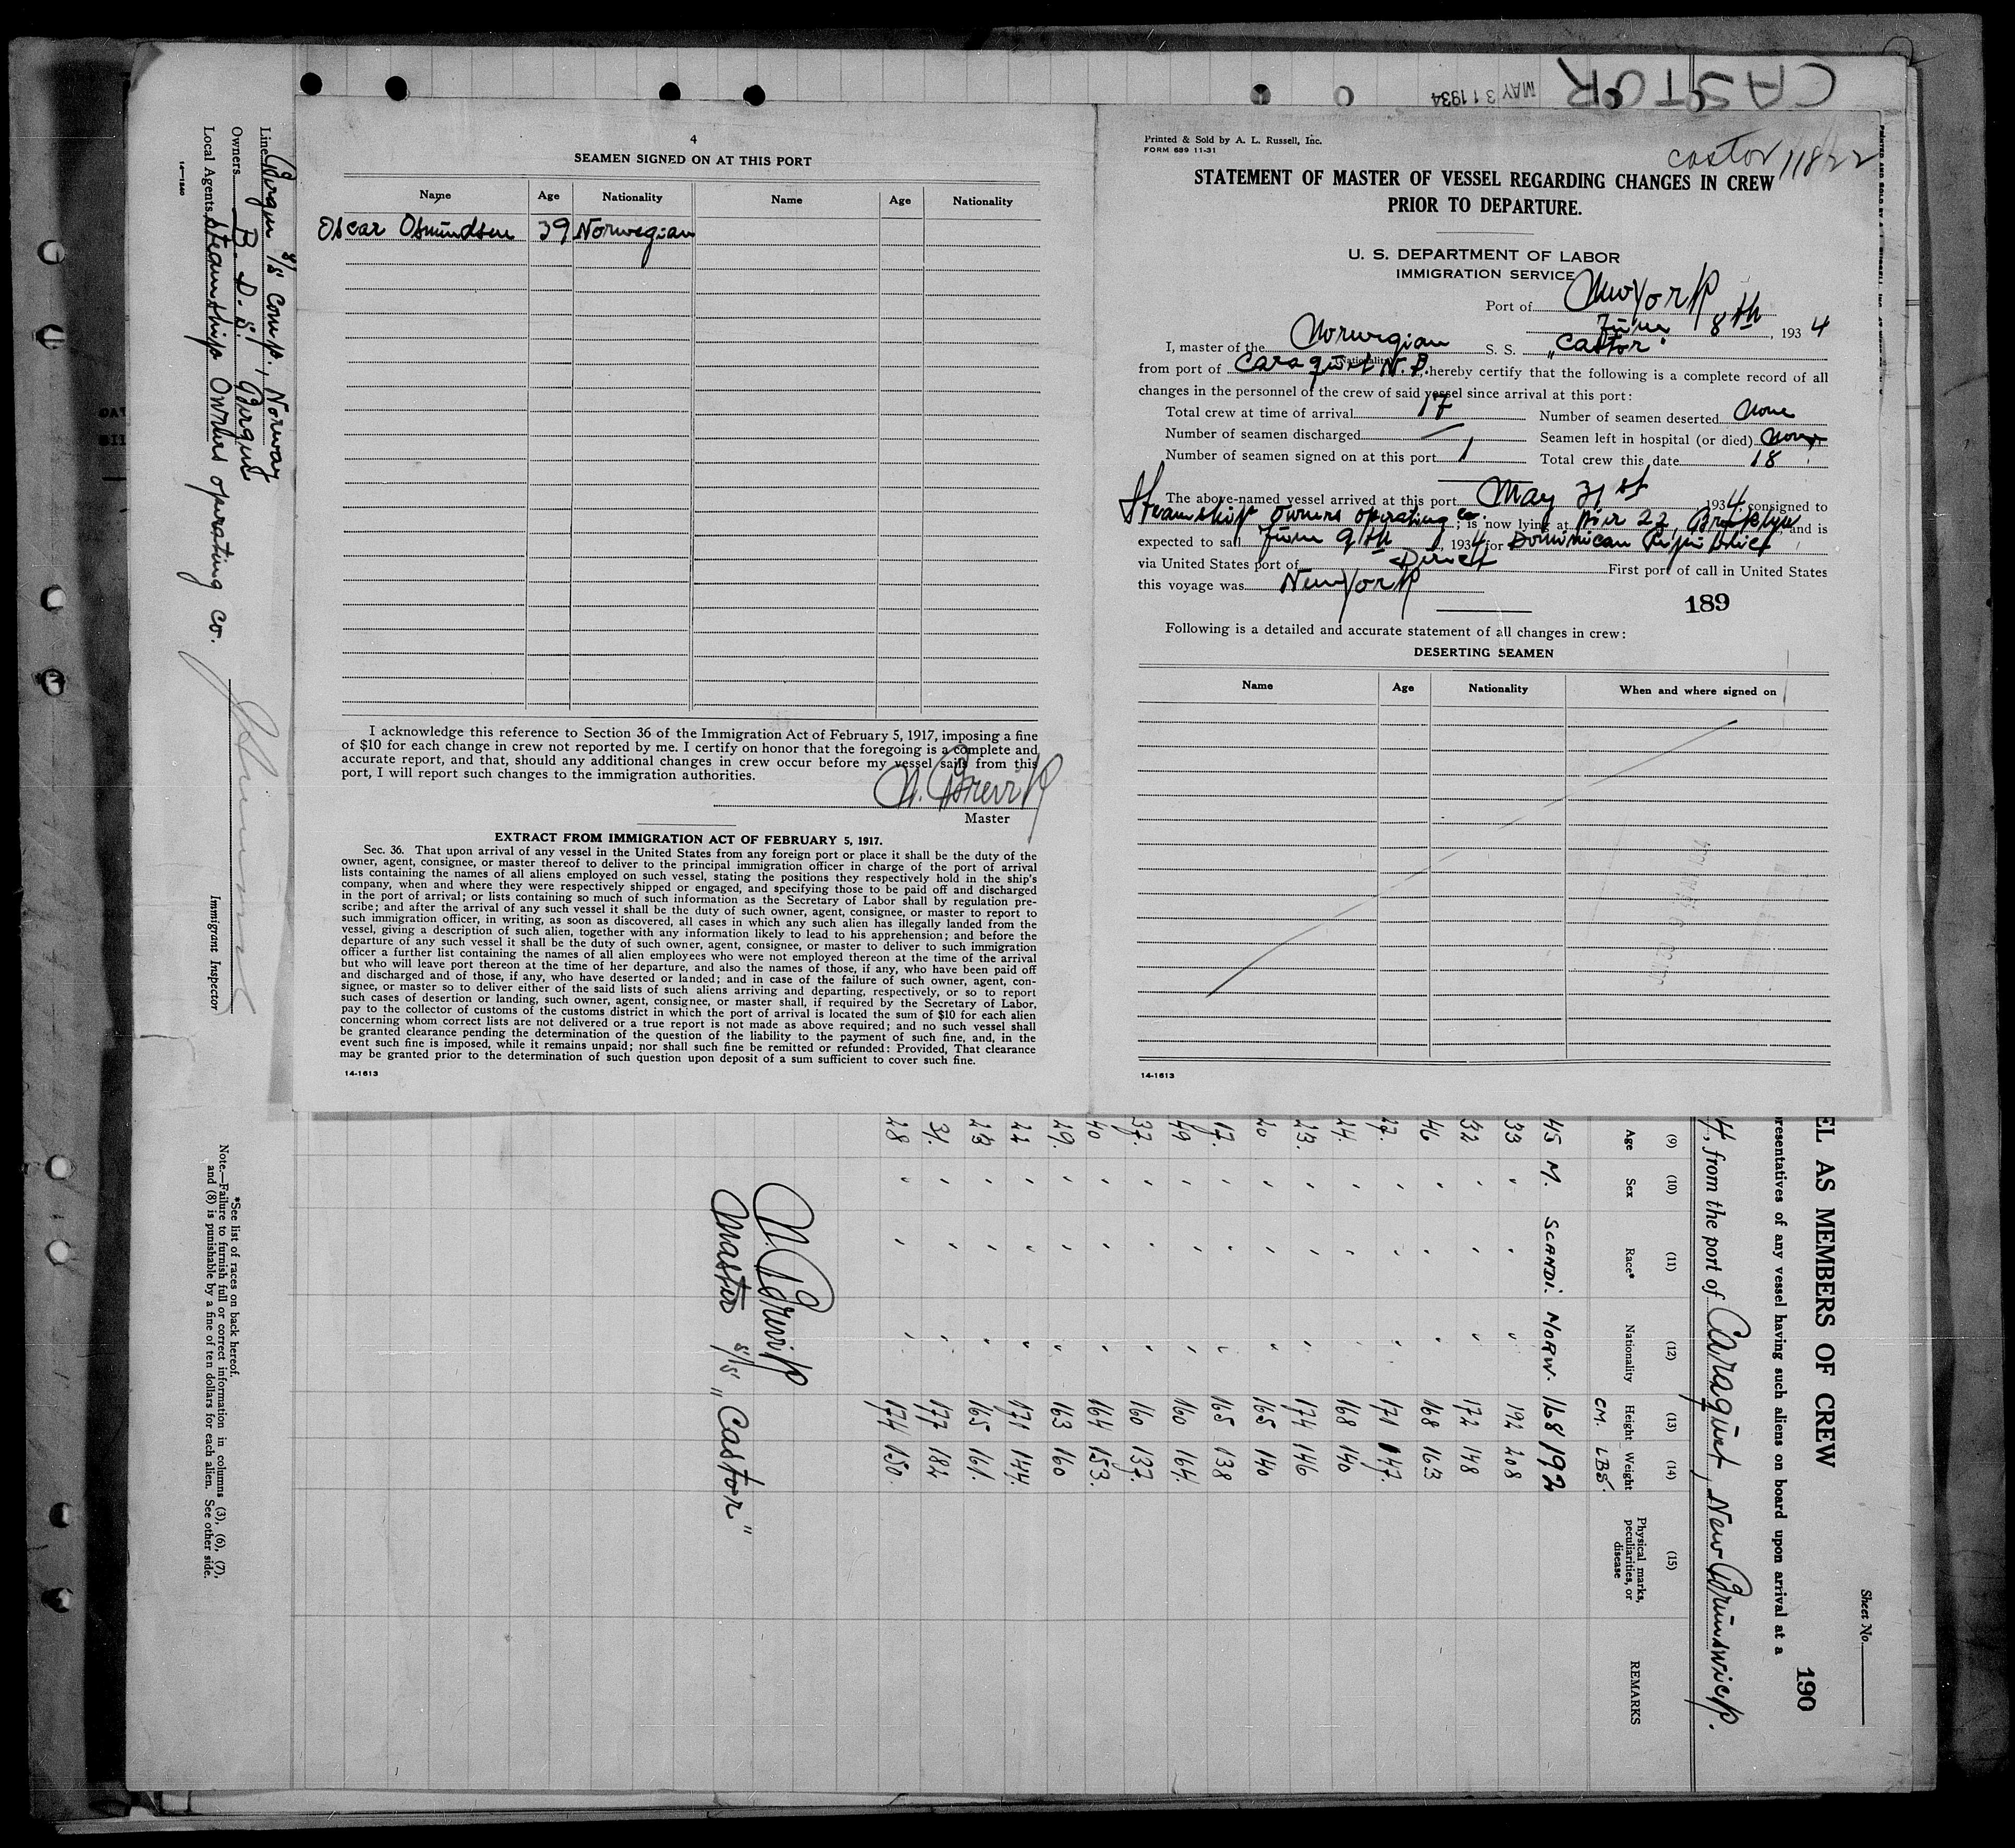 CASTOR
MAY 31 1934
4
SEAMEN SIGNED ON AT THIS PORT
Name Age Nationality Name Age Nationality
Oscar Osmundsen 39 Norwegian
I acknowledge this reference to Section 36 of the Immigration Act of February 5, 1917, imposing a fine
of $10 for each change in crew not reported by me. I certify on honor that the foregoing is a complete and
accurate report, and that, should any additional changes in crew occur before my vessel sails from this
port, I will report such changes to the immigration authorities.
N. Brevik
Master
EXTRACT FROM IMMIGRATION ACT OF FEBRUARY 5, 1917.
Sec. 36. That upon arrival of any vessel in the United States from any foreign port or place it shall be the duty of the
owner, agent, consignee, or master thereof to deliver to the principal immigration officer in charge of the port of arrival
lists containing the names of all aliens employed on such vessel, stating the positions they respectively hold in the ship's
company, when and where they were respectively shipped or engaged, and specifying those to be paid off and discharged
in the port of arrival; or lists containing so much of such information as the Secretary of Labor shall by regulation pre-
scribe; and after the arrival of any such vessel it shall be the duty of such owner, agent, consignee, or master to report to
such immigration officer, in writing, as soon as discovered, all cases in which any such alien has illegally landed from the
vessel, giving a description of such alien, together with any information likely to lead to his apprehension; and before the
departure of any such vessel it shall be the duty of such owner, agent, consignee, or master to deliver to such immigration
officer a further list containing the names of all alien employees who were not employed thereon at the time of the arrival
but who will leave port thereon at the time of her departure, and also the names of those, if any, who have been paid off
and discharged and of those, if any, who have deserted or landed; and in case of the failure of such owner, agent, con-
signee, or master so to deliver either of the said lists of such aliens arriving and departing, respectively, or so to report
such cases of desertion or landing, such owner, agent, consignee, or master shall, if required by the Secretary of Labor,
pay to the collector of customs of the customs district in which the port of arrival is located the sum of $10 for each alien
concerning whom correct lists are not delivered or a true report is not made as above required; and no such vessel shall
be granted clearance pending the determination of the question of the liability to the payment of such fine, and, in the
event such fine is imposed, while it remains unpaid; nor shall such fine be remitted or refunded: Provided, That clearance
may be granted prior to the determination of such question upon deposit of a sum sufficient to cover such fine.
14-1613
Printed & Sold by A. L. Russell, Inc.
FORM 689 11-31
Castor 11822
STATEMENT OF MASTER OF VESSEL REGARDING CHANGES IN CREW
PRIOR TO DEPARTURE.
U. S. DEPARTMENT OF LABOR
IMMIGRATION SERVICE
Port of New York
June 8th, 1934
I, master of the Norwegian S. S. "Castor"
(Nationality)
from port of Caraquet N.B. hereby certify that the following is a complete record of all
changes in the personnel of the crew of said vessel since arrival at this port:
Total crew at time of arrival 17 Number of seamen deserted None
Number of seamen discharged — Seamen left in hospital (or died) None
Number of seamen signed on at this port 1 Total crew this date 18
The above-named vessel arrived at this port May 31st 1934, consigned to
Steamship Owners operating Co. ; is now lying at Pier 22, Brooklyn and is
expected to sail June 9th, 1934 for Dominican Republic
via United States port of Direct First port of call in United States
this voyage was New York
189
Following is a detailed and accurate statement of all changes in crew:
DESERTING SEAMEN
Name Age Nationality When and where signed on
14-1613
Line Bergen S/S Comp., Norway
Owners B. D. S. Bergen
Local Agents Steamship Owners operating Co.
14-1240
Immigrant Inspector
*See list of races on back hereof.
Note.—Failure to furnish full or correct information in columns (3), (6), (7),
and (8) is punishable by a fine of ten dollars for each alien. See other side.
Sheet No.
190
EL AS MEMBERS OF CREW
presentatives of any vessel having such aliens on board upon arrival at a
4, from the port of Caraquet, New Brunswick.
(9) (10) (11) (12) (13) (14) (15)
Age Sex Race* Nationality Height Weight Physical marks, peculiarities, or disease REMARKS
CM. LBS.
45 M. SCANDI. NORW. 168 192
33 " " " 192 208
32 " " " 172 148
46 " " " 168 163
27. " " " 171 147.
24. " " " 168 140
23. " " " 174 146
20 " " " 165 140
17. " " " 165 138
49 " " " 160 164.
37. " " " 160 137.
40 " " " 164 153.
29. " " " 163 160
22 " " " 171 144.
23 " " " 165 161.
31. " " " 177 182
28 " " " 174 150.
N. Brevik
Master S/S "Castor"